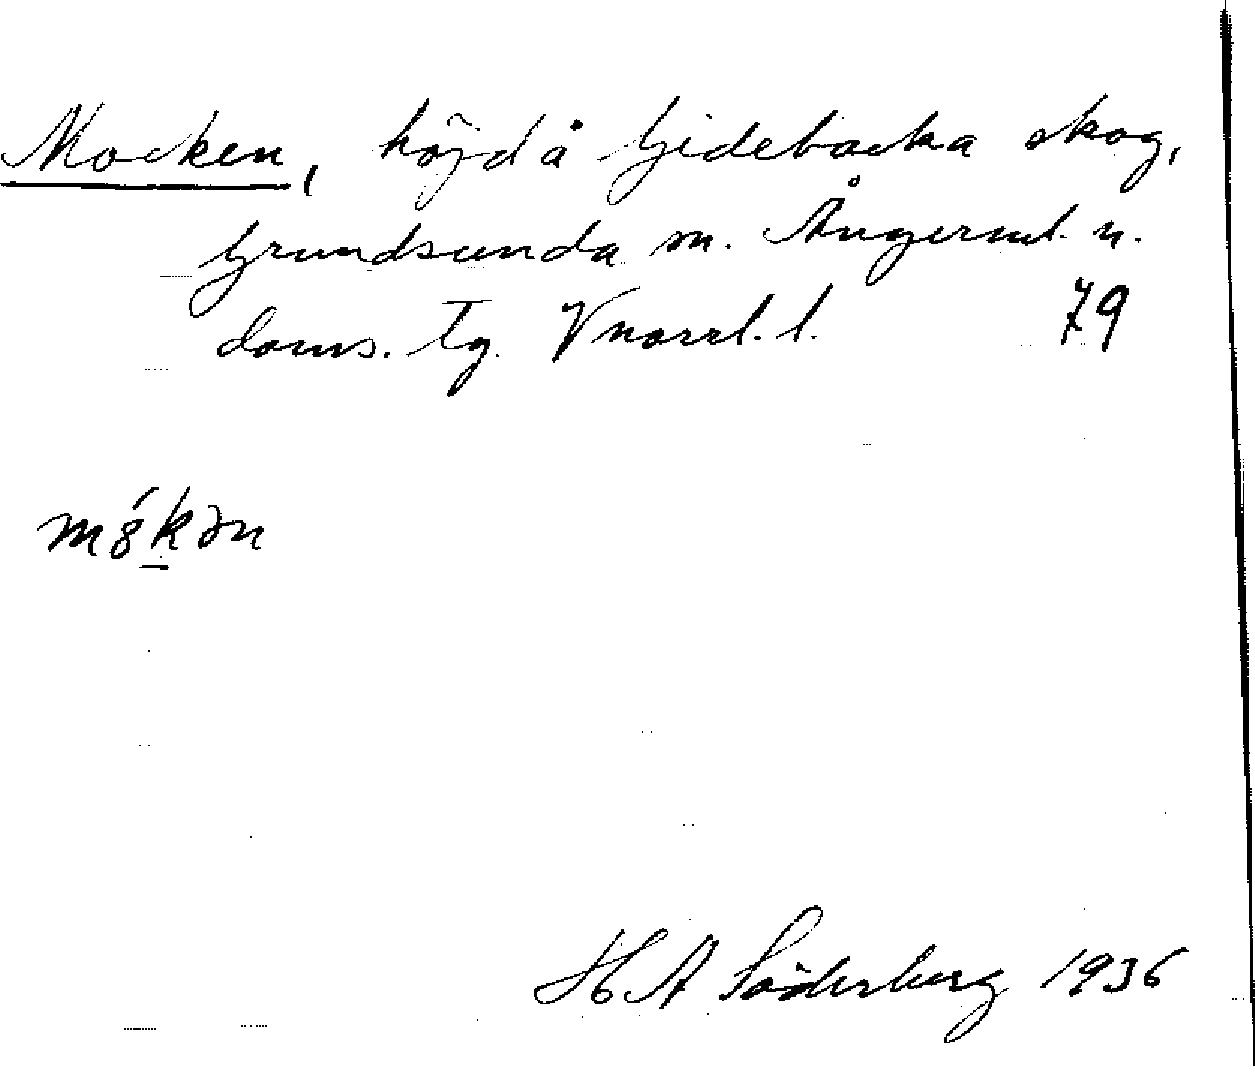 Mocken, höjd å Gidebacka skog,
Grundsunda sn. Ångerml. n.
doms. tg. Vnorrl. l. 79
mó̤kən
H A Söderberg 1936